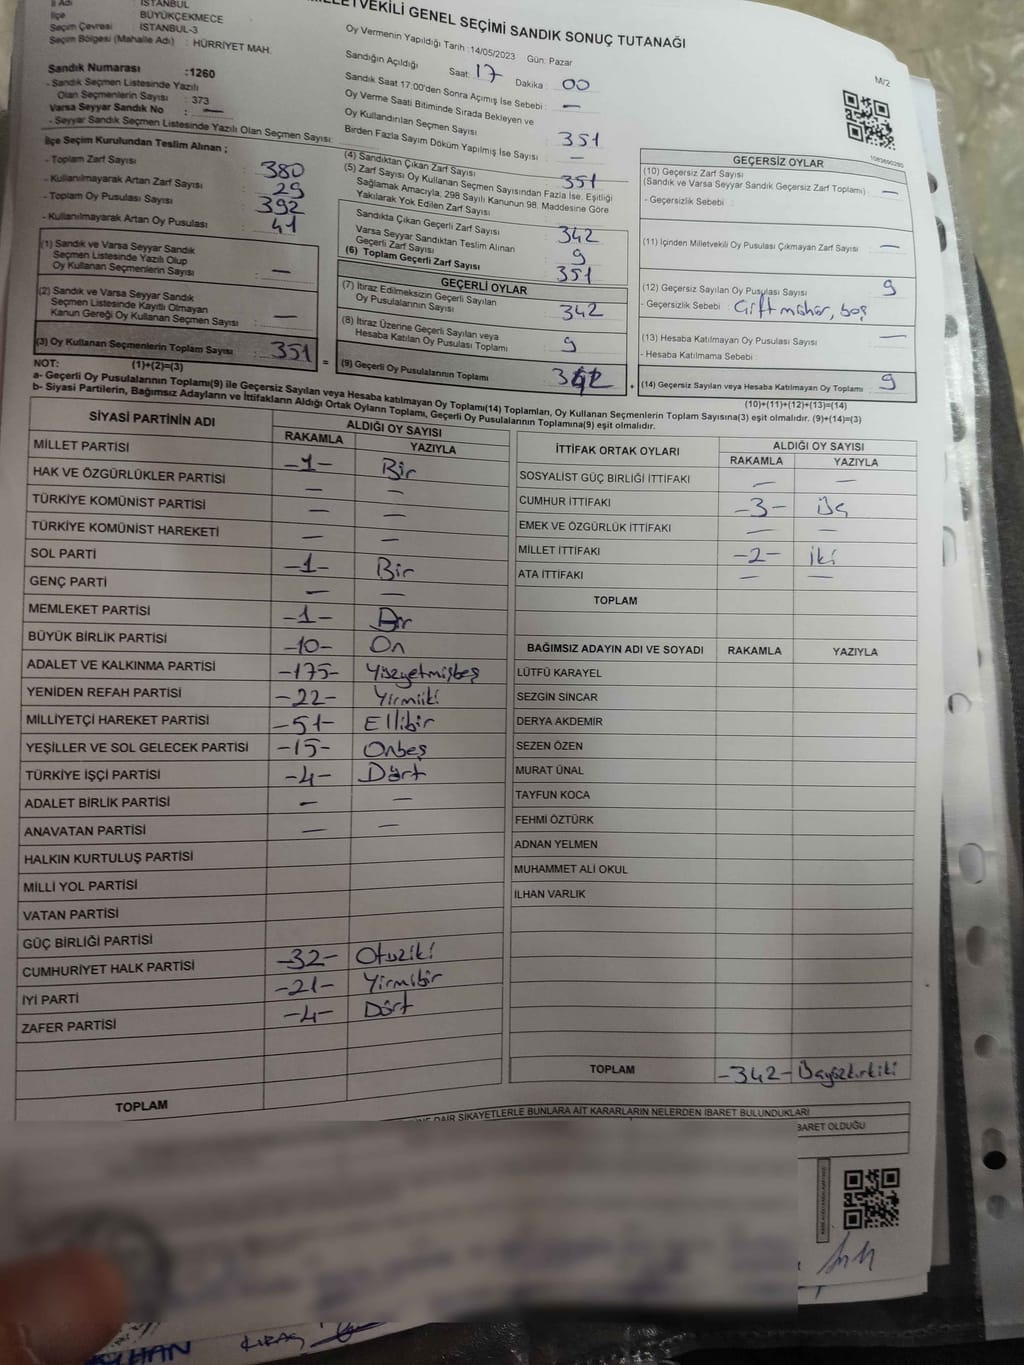 İSTANBUL
İlçe : BÜYÜKÇEKMECE
Seçim Çevresi : İSTANBUL-3
Seçim Bölgesi (Mahalle Adı) : HÜRRİYET MAH.
GENEL SEÇİMİ SANDIK SONUÇ TUTANAĞI
Oy Vermenin Yapıldığı Tarih :14/05/2023 Gün: Pazar
Sandığın Açıldığı Saat: 17 Dakika : 00
Sandık Saat 17:00'den Sonra Açımış İse Sebebi : —
Oy Verme Saati Bitiminde Sırada Bekleyen ve
Oy Kullandırılan Seçmen Sayısı : 351
Birden Fazla Sayım Döküm Yapılmış İse Sayısı : —
M/2
Sandık Numarası :1260
- Sandık Seçmen Listesinde Yazılı
Olan Seçmenlerin Sayısı : 373
Varsa Seyyar Sandık No : —
- Seyyar Sandık Seçmen Listesinde Yazılı Olan Seçmen Sayısı:
İlçe Seçim Kurulundan Teslim Alınan ;
- Toplam Zarf Sayısı : 380
- Kullanılmayarak Artan Zarf Sayısı : 29
- Toplam Oy Pusulası Sayısı : 392
- Kullanılmayarak Artan Oy Pusulası : 41
(1) Sandık ve Varsa Seyyar Sandık
Seçmen Listesinde Yazılı Olup
Oy Kullanan Seçmenlerin Sayısı : —
(2) Sandık ve Varsa Seyyar Sandık
Seçmen Listesinde Kayıtlı Olmayan
Kanun Gereği Oy Kullanan Seçmen Sayısı : —
(3) Oy Kullanan Seçmenlerin Toplam Sayısı : 351
(1)+(2)=(3)
(4) Sandıktan Çıkan Zarf Sayısı : 351
(5) Zarf Sayısı Oy Kullanan Seçmen Sayısından Fazla İse, Eşitliği
Sağlamak Amacıyla, 298 Sayılı Kanunun 98. Maddesine Göre
Yakılarak Yok Edilen Zarf Sayısı
Sandıkta Çıkan Geçerli Zarf Sayısı : 342
Varsa Seyyar Sandıktan Teslim Alınan
Geçerli Zarf Sayısı : 9
(6) Toplam Geçerli Zarf Sayısı : 351
GEÇERLİ OYLAR
(7) İtiraz Edilmeksizin Geçerli Sayılan
Oy Pusulalarının Sayısı : 342
(8) İtiraz Üzerine Geçerli Sayılan veya
Hesaba Katılan Oy Pusulası Toplamı : 9
(9) Geçerli Oy Pusulalarının Toplamı : 342
GEÇERSİZ OYLAR
(10) Geçersiz Zarf Sayısı
(Sandık ve Varsa Seyyar Sandık Geçersiz Zarf Toplamı) : —
- Geçersizlik Sebebi :
(11) İçinden Milletvekili Oy Pusulası Çıkmayan Zarf Sayısı : —
(12) Geçersiz Sayılan Oy Pusulası Sayısı : 9
- Geçersizlik Sebebi : Çift mühür, boş
(13) Hesaba Katılmayan Oy Pusulası Sayısı : —
- Hesaba Katılmama Sebebi :
(14) Geçersiz Sayılan veya Hesaba Katılmayan Oy Toplamı : 9
(10)+(11)+(12)+(13)=(14)
NOT:
a- Geçerli Oy Pusulalarının Toplamı(9) ile Geçersiz Sayılan veya Hesaba katılmayan Oy Toplamı(14) Toplamları, Oy Kullanan Seçmenlerin Toplam Sayısına(3) eşit olmalıdır. (9)+(14)=(3)
b- Siyasi Partilerin, Bağımsız Adayların ve İttifakların Aldığı Ortak Oyların Toplamı, Geçerli Oy Pusulalarının Toplamına(9) eşit olmalıdır.
SİYASİ PARTİNİN ADI ALDIĞI OY SAYISI
RAKAMLA YAZIYLA
MİLLET PARTİSİ -1- Bir
HAK VE ÖZGÜRLÜKLER PARTİSİ — —
TÜRKİYE KOMÜNİST PARTİSİ — —
TÜRKİYE KOMÜNİST HAREKETİ — —
SOL PARTİ -1- Bir
GENÇ PARTİ — —
MEMLEKET PARTİSİ -1- Bir
BÜYÜK BİRLİK PARTİSİ -10- On
ADALET VE KALKINMA PARTİSİ -175- Yüzyetmişbeş
YENİDEN REFAH PARTİSİ -22- Yirmiiki
MİLLİYETÇİ HAREKET PARTİSİ -51- Ellibir
YEŞİLLER VE SOL GELECEK PARTİSİ -15- Onbeş
TÜRKİYE İŞÇİ PARTİSİ -4- Dört
ADALET BİRLİK PARTİSİ — —
ANAVATAN PARTİSİ — —
HALKIN KURTULUŞ PARTİSİ
MİLLİ YOL PARTİSİ
VATAN PARTİSİ
GÜÇ BİRLİĞİ PARTİSİ
CUMHURİYET HALK PARTİSİ -32- Otuziki
İYİ PARTİ -21- Yirmibir
ZAFER PARTİSİ -4- Dört
TOPLAM
İTTİFAK ORTAK OYLARI ALDIĞI OY SAYISI
RAKAMLA YAZIYLA
SOSYALİST GÜÇ BİRLİĞİ İTTİFAKI — —
CUMHUR İTTİFAKI -3- Üç
EMEK VE ÖZGÜRLÜK İTTİFAKI — —
MİLLET İTTİFAKI -2- İki
ATA İTTİFAKI — —
TOPLAM
BAĞIMSIZ ADAYIN ADI VE SOYADI RAKAMLA YAZIYLA
LÜTFÜ KARAYEL
SEZGİN SİNCAR
DERYA AKDEMİR
SEZEN ÖZEN
MURAT ÜNAL
TAYFUN KOCA
FEHMİ ÖZTÜRK
ADNAN YELMEN
MUHAMMET ALİ OKUL
İLHAN VARLIK
TOPLAM -342- Üçyüzkırkiki
DAİR ŞİKAYETLERLE BUNLARA AİT KARARLARIN NELERDEN İBARET BULUNDUKLARI
BARET OLDUĞU